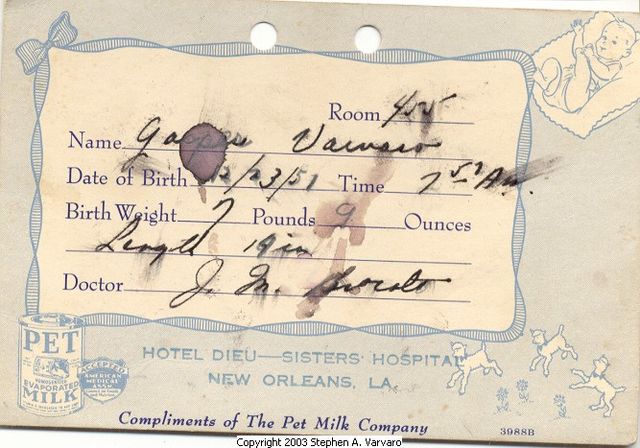 Room 455
Name Gaspar Varvaro
Date of Birth 12/23/51 Time 7 51 Am.
Birth Weight 7 Pounds 9 Ounces
Length 19 in
Doctor J. M.
PET
HOMOGENIZED
EVAPORATED
MILK
ACCEPTED
AMERICAN
MEDICAL
ASSN.
HOTEL DIEU—SISTERS' HOSPITAL
NEW ORLEANS, LA.
Compliments of The Pet Milk Company
3988B
Copyright 2003 Stephen A. Varvaro